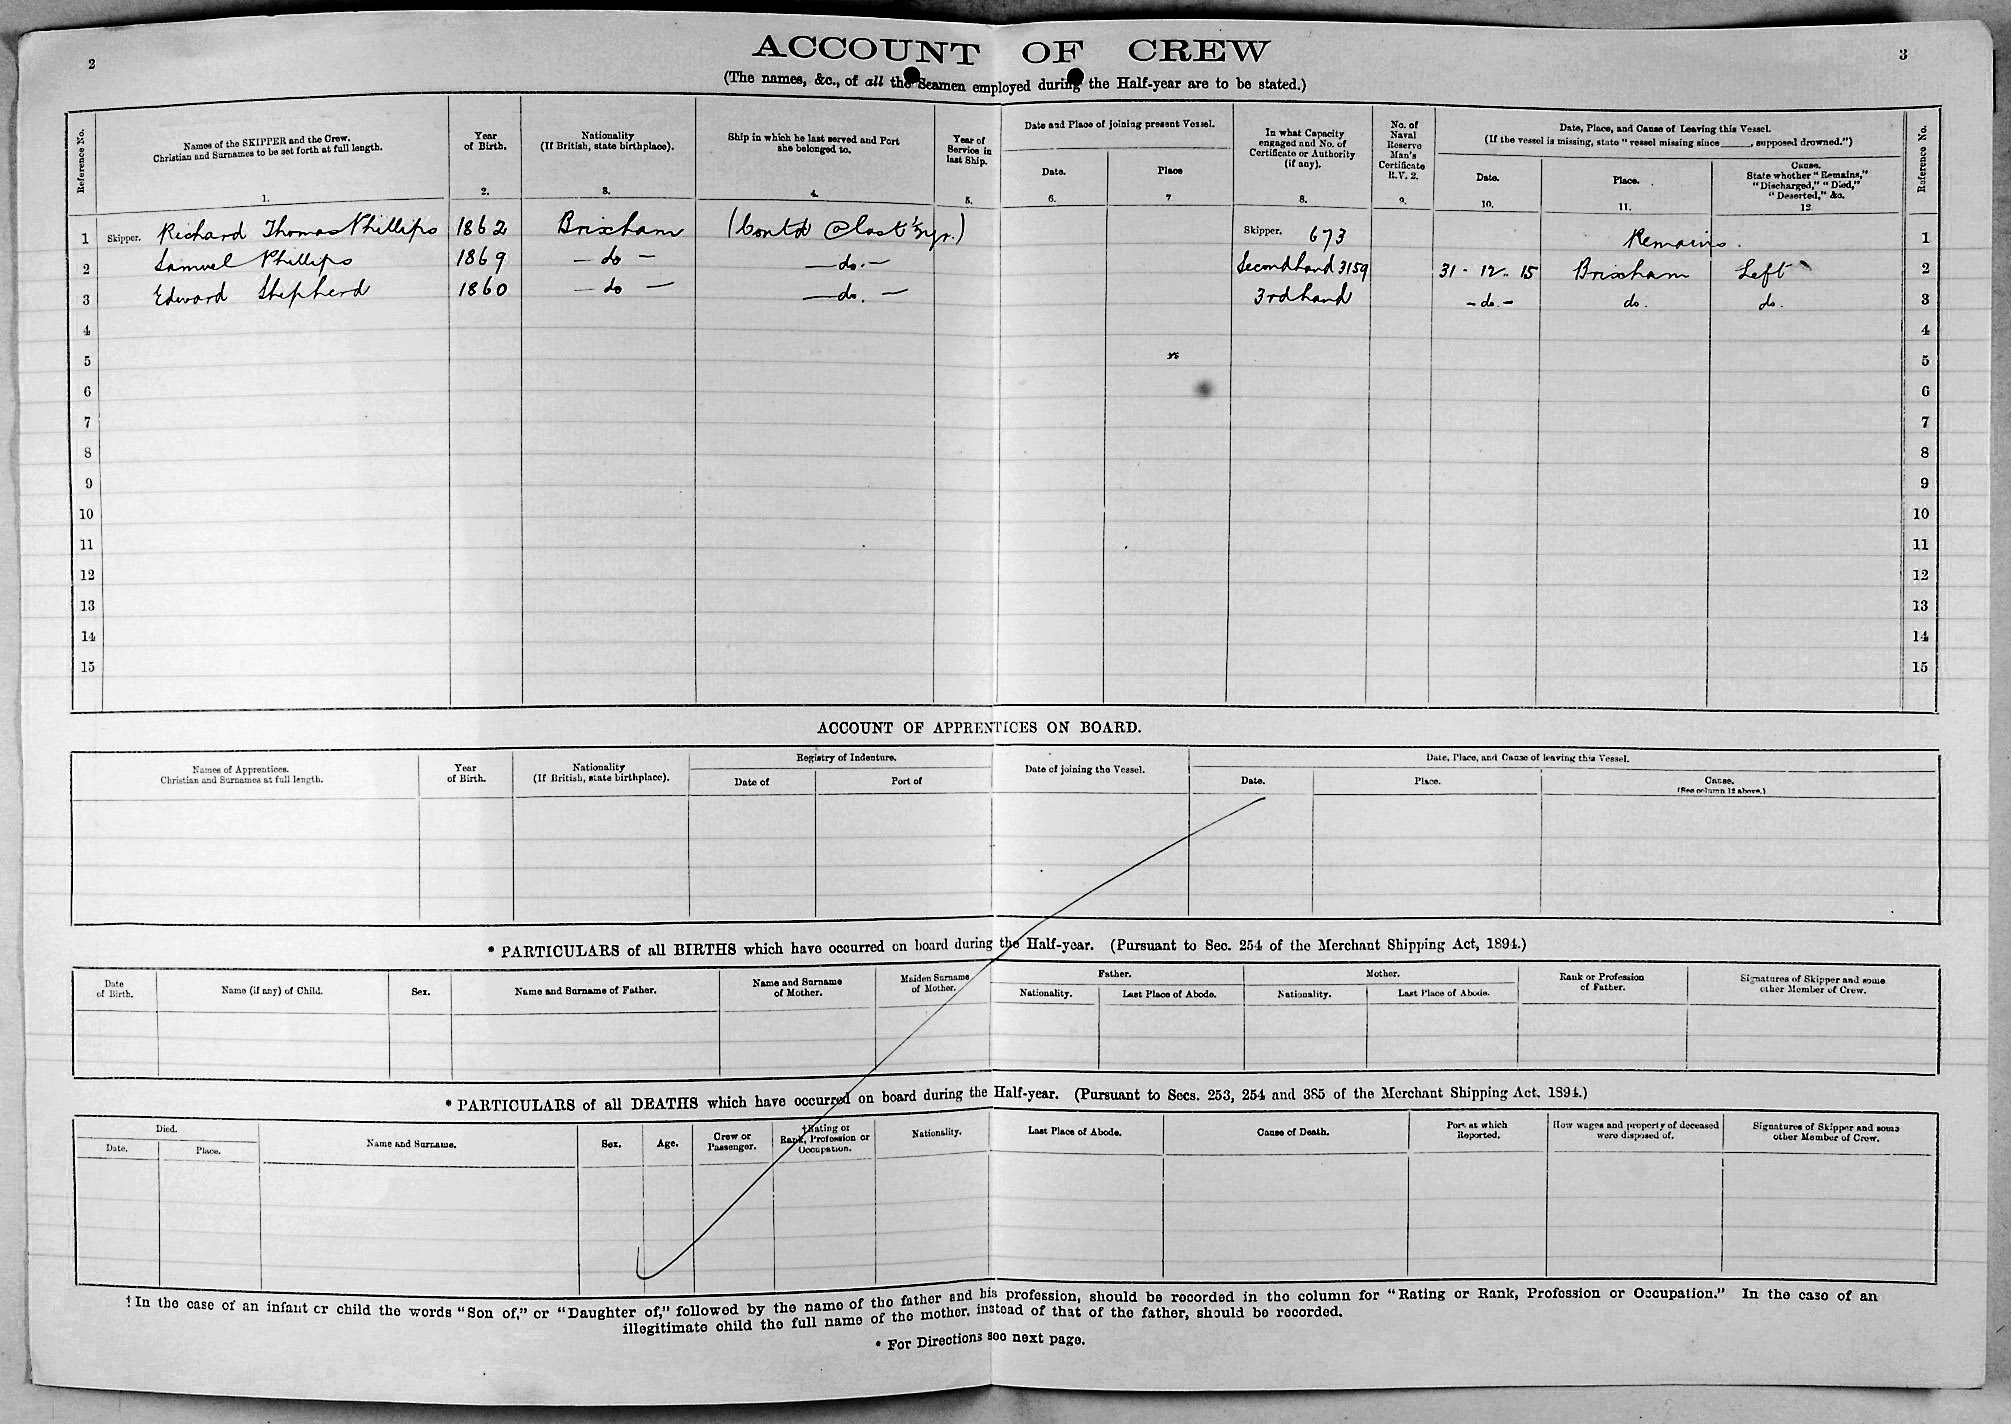 2
ACCOUNT OF CREW
3
(The names, &c., of all the Seamen employed during the Half-year are to be stated.)
Reference No.
Names of the SKIPPER and the Crew.
Christian and Surnames to be set forth at full length.
1.
Year
of Birth.
2.
Nationality
(If British, state birthplace).
3.
Ship in which he last served and Port
she belonged to.
4.
Year of
Service in
last Ship.
5.
Date and Place of joining present Vessel.
Date.
6.
Place
7
In what Capacity
engaged and No. of
Certificate or Authority
(if any).
8.
No. of
Naval
Reserve
Man's
Certificate
R.V. 2.
9.
Date, Place, and Cause of Leaving this Vessel.
(If the vessel is missing, state "vessel missing since ____, supposed drowned.")
Date.
10.
Place.
11.
Cause.
State whether "Remains,"
"Discharged," "Died,"
"Deserted," &c.
12
Reference No.
1 Skipper. Richard Thomas Phillips 1862 Brixham (Contd @ last ½ yr.) Skipper. 673 Remains. 1
2 Samuel Phillips 1869 - do - - do. - Secondhand 3159 31 - 12 .. 15 Brixham Left 2
3 Edward Shepherd 1860 - do - - do. - 3rd hand - do. - do. do. 3
4 4
5 5
6 6
7 7
8 8
9 9
10 10
11 11
12 12
13 13
14 14
15 15
ACCOUNT OF APPRENTICES ON BOARD.
Names of Apprentices.
Christian and Surnames at full length.
Year
of Birth.
Nationality
(If British, state birthplace).
Registry of Indenture.
Date of
Port of
Date of joining the Vessel.
Date, Place, and Cause of leaving this Vessel.
Date.
Place.
Cause.
(See column 12 above.)
* PARTICULARS of all BIRTHS which have occurred on board during the Half-year. (Pursuant to Sec. 254 of the Merchant Shipping Act, 1894.)
Date
of Birth.
Name (if any) of Child.
Sex.
Name and Surname of Father.
Name and Surname
of Mother.
Maiden Surname
of Mother.
Father.
Nationality.
Last Place of Abode.
Mother.
Nationality.
Last Place of Abode.
Rank or Profession
of Father.
Signatures of Skipper and some
other Member of Crew.
* PARTICULARS of all DEATHS which have occurred on board during the Half-year. (Pursuant to Secs. 253, 254 and 385 of the Merchant Shipping Act, 1894.)
Died.
Date.
Place.
Name and Surname.
Sex.
Age.
Crew or
Passenger.
†Rating or
Rank, Profession or
Occupation.
Nationality.
Last Place of Abode.
Cause of Death.
Port at which
Reported.
How wages and property of deceased
were disposed of.
Signatures of Skipper and some
other Member of Crew.
† In the case of an infant or child the words "Son of," or "Daughter of," followed by the name of the father and his profession, should be recorded in the column for "Rating or Rank, Profession or Occupation." In the case of an
illegitimate child the full name of the mother, instead of that of the father, should be recorded.
* For Directions see next page.